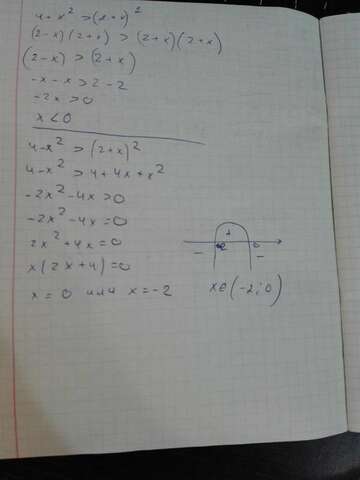 4-x² > (2+x)²
(2-x)(2+x) > (2+x)(2+x)
(2-x) > (2+x)
-x-x > 2-2
-2x > 0
x < 0
4-x² > (2+x)²
4-x² > 4+4x+x²
-2x²-4x > 0
-2x²-4x = 0
2x²+4x = 0
x(2x+4) = 0
x = 0 или x = -2
+
- -2 0 -
x∈(-2;0)